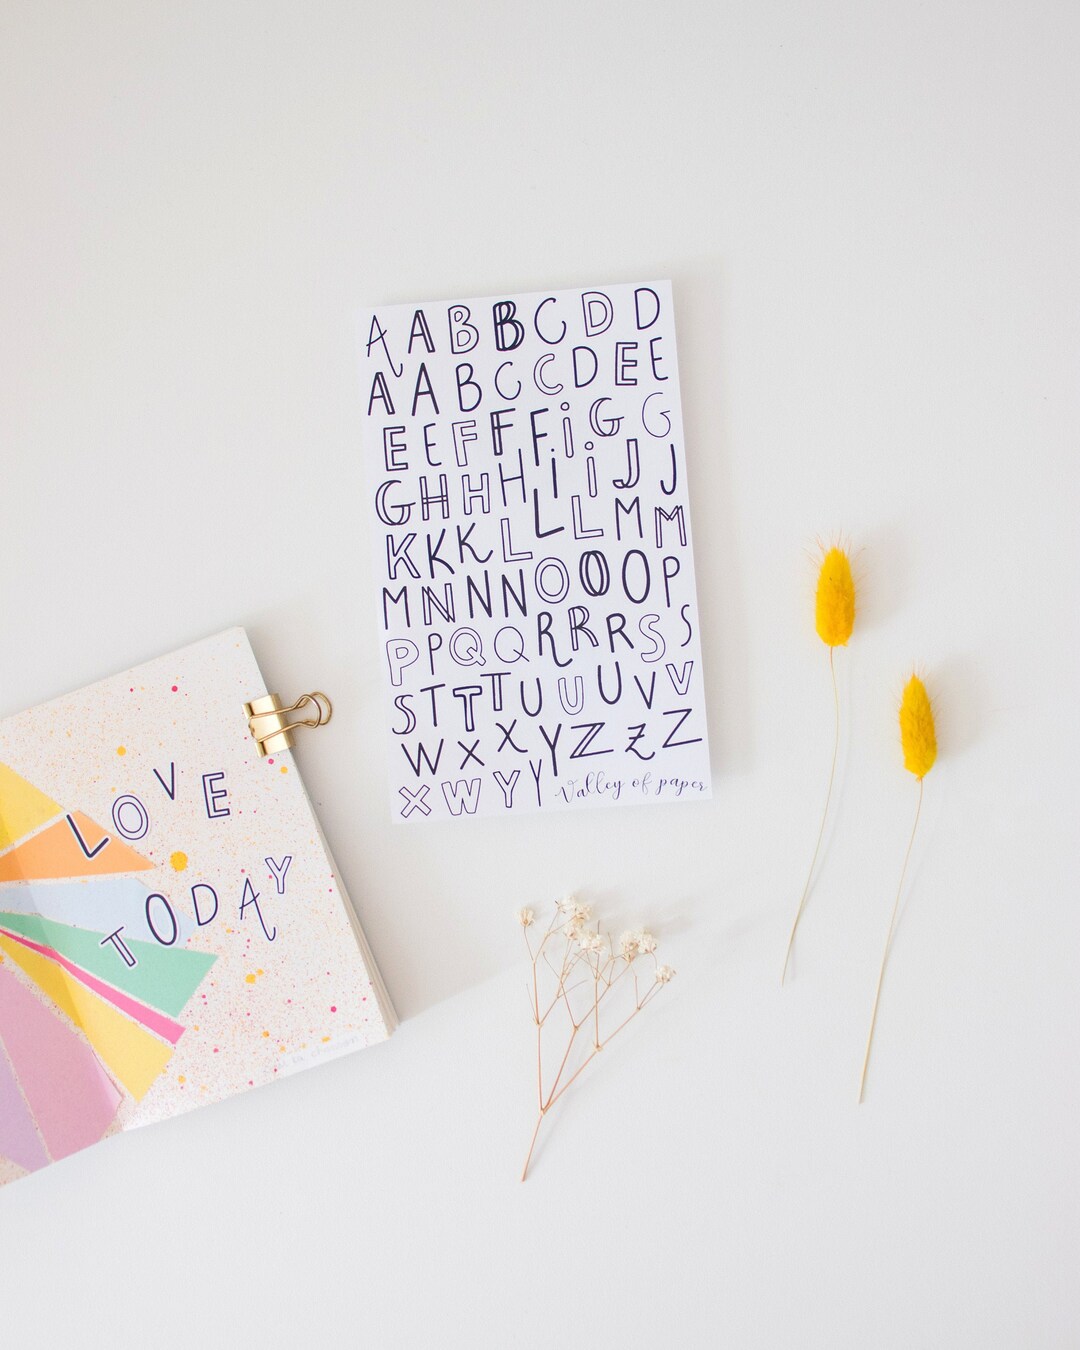 A A B B C D D
A A B C C D E E
E E F F F i G G
G H H H i i J J
K K K L L L M M
M N N N O O O P
P P Q Q R R R S S
S T T T U U U V V
W X X Y Z Z Z
X W Y Y Valley of paper
LOVE
TODAY